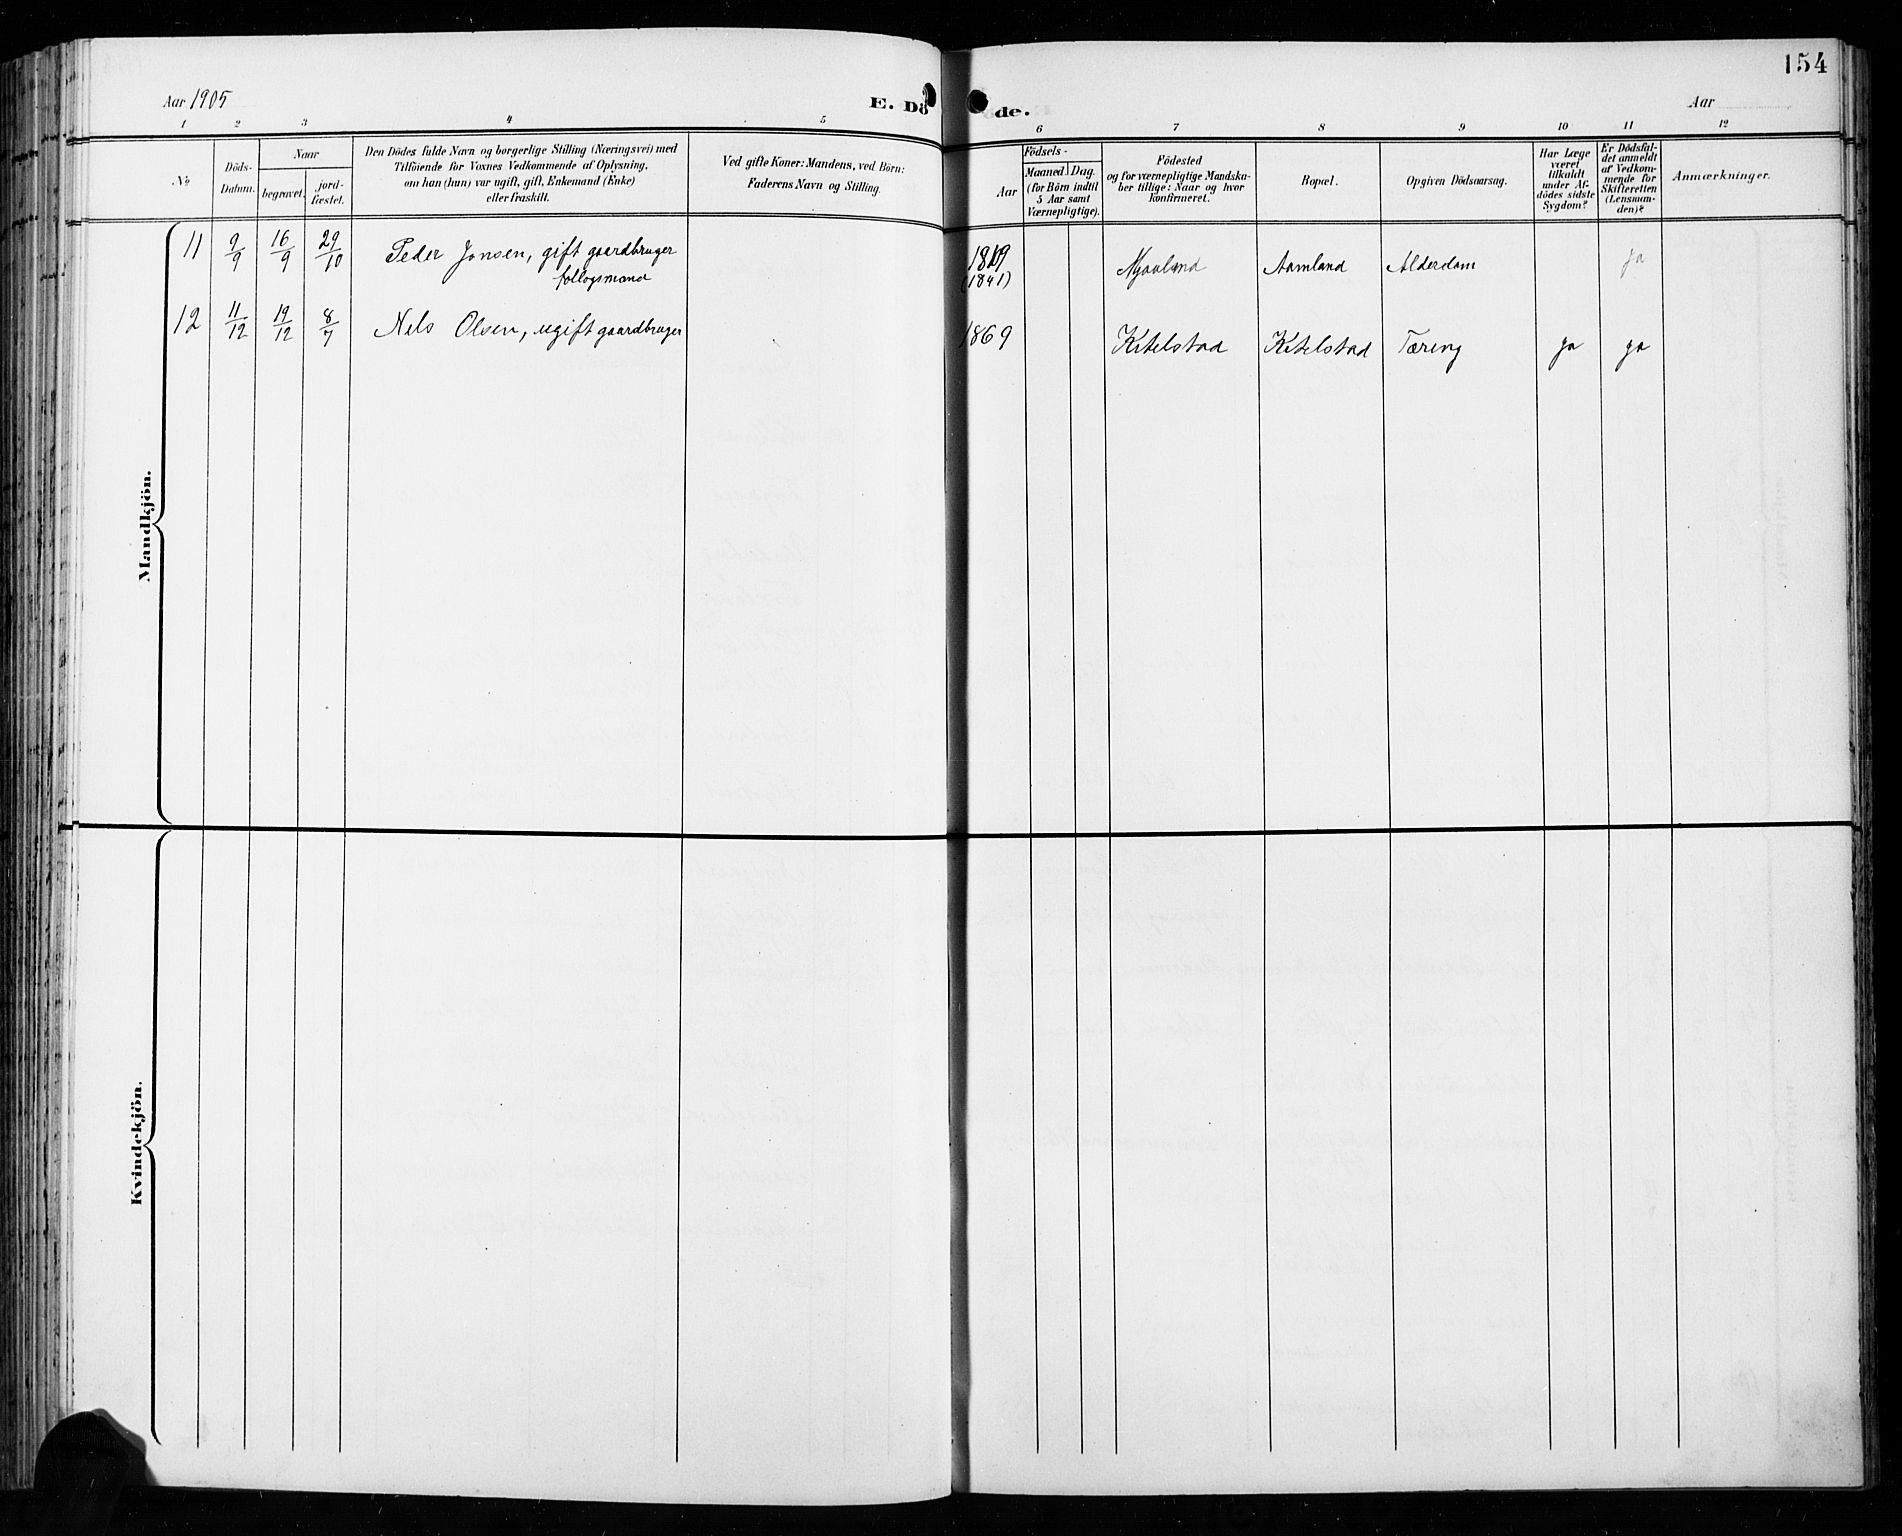 154
Aar 1905
E. Dö
de.
Aar
1 2 3 4 5 6 7 8 9 10 11 12
No
Döds-
Datum.
Naar
begravet.
jord-
fæstet.
Den Dödes fulde Navn og borgerlige Stilling (Næringsvei) med
Tilföiende for Voxnes Vedkommende af Oplysning,
om han (hun) var ugift, gift, Enkemand (Enke)
eller fraskilt.
Ved gifte Koner: Mandens, ved Börn:
Faderens Navn og Stilling.
Födsels-
Aar
Maaned. Dag.
(for Börn indtil
5 Aar samt
Værnepligtige).
Födested
og for værnepligtige Mandska-
ber tillige: Naar og hvor
konfirmeret.
Bopæl.
Opgiven Dödsaarsag.
Har Læge
været
tilkaldt
under Af-
dödes sidste
Sygdom?
Er Dödsfal-
det anmeldt
af Vedkom-
mende for
Skifteretten
(Lensman-
den)?
Anmærkninger.
Mandkjön.
11 9/9 16/9 29/10 Peder Jonsen, gift gaardbruger 1819 Mjaaland Aamland Alderdom ja
follogsmand (1841)
12 11/12 19/12 8/7 Nils Olsen, ugift gaardbruger 1869 Ketelstad Ketelstad Tæring ja ja
Kvindekjön.